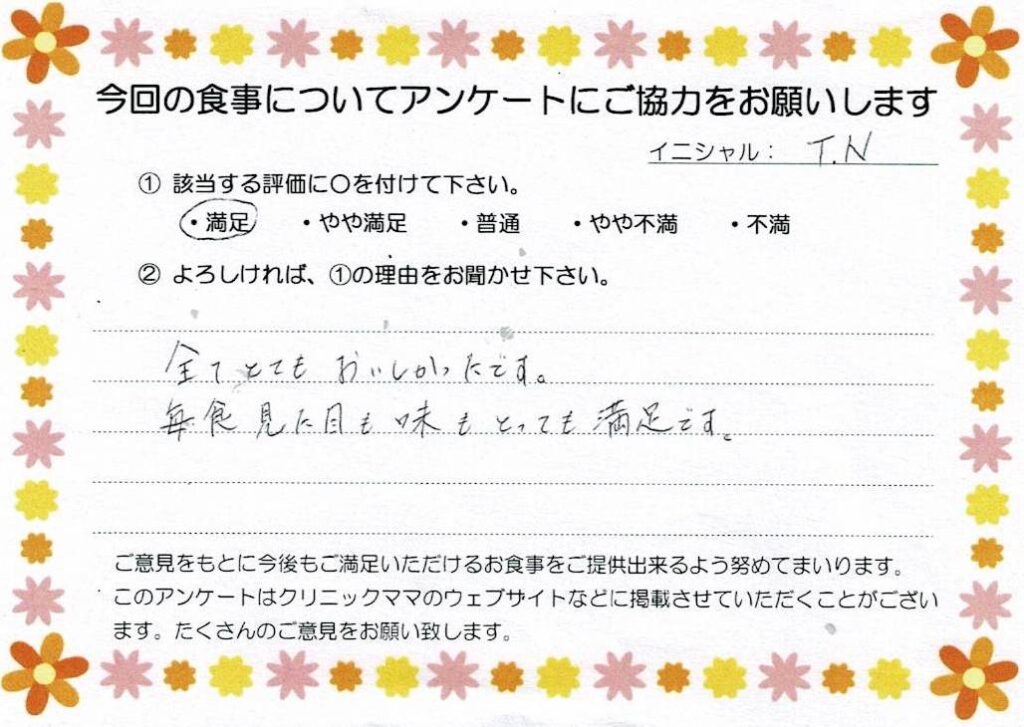 今回の食事についてアンケートにご協力をお願いします
イニシャル： T.N
① 該当する評価に〇を付けて下さい。
・満足 ・やや満足 ・普通 ・やや不満 ・不満
② よろしければ、①の理由をお聞かせ下さい。
全てとても おいしかったです。
毎食 見た目も味もとっても満足です。
ご意見をもとに今後もご満足いただけるお食事をご提供出来るよう努めてまいります。
このアンケートはクリニックママのウェブサイトなどに掲載させていただくことがござい
ます。たくさんのご意見をお願い致します。